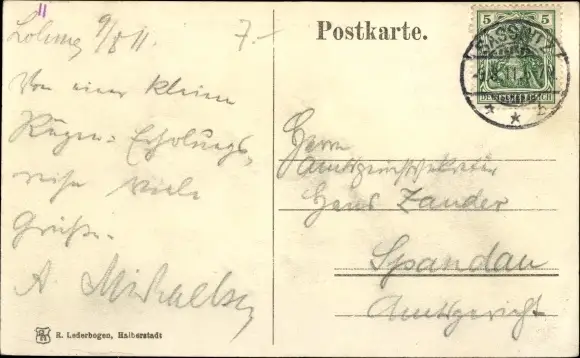 Lohme 9/8 11.
7.-
Von einer kleinen
Rügen-Erholungs-
reise viele
Grüße.
A. Michaelsen
R. Lederbogen, Halberstadt
Postkarte.
5 5
DEUTSCHES REICH
SASSNITZ
9.8.11
* * c
Herrn
Amtsgerichtssekretär
Hans Zander
Spandau
Amtsgericht